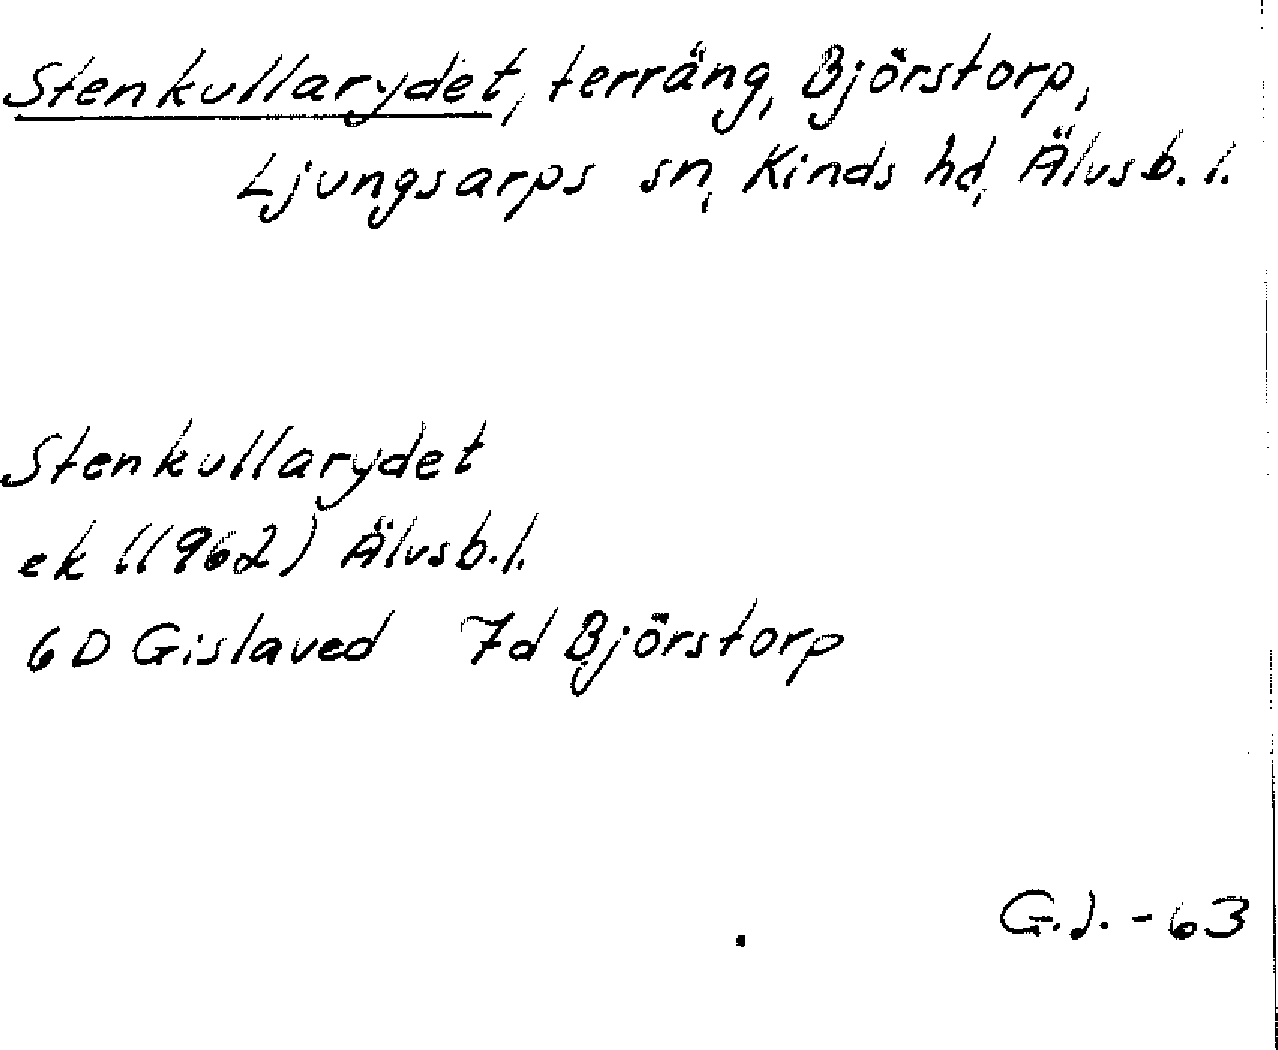 Stenkullarydet, terräng, Björstorp,
Ljungsarps sn, Kinds hd, Älvsb. l.
Stenkullarydet
ek (1962) Älvsb. l.
6D Gislaved 7d Björstorp
G.J. - 63